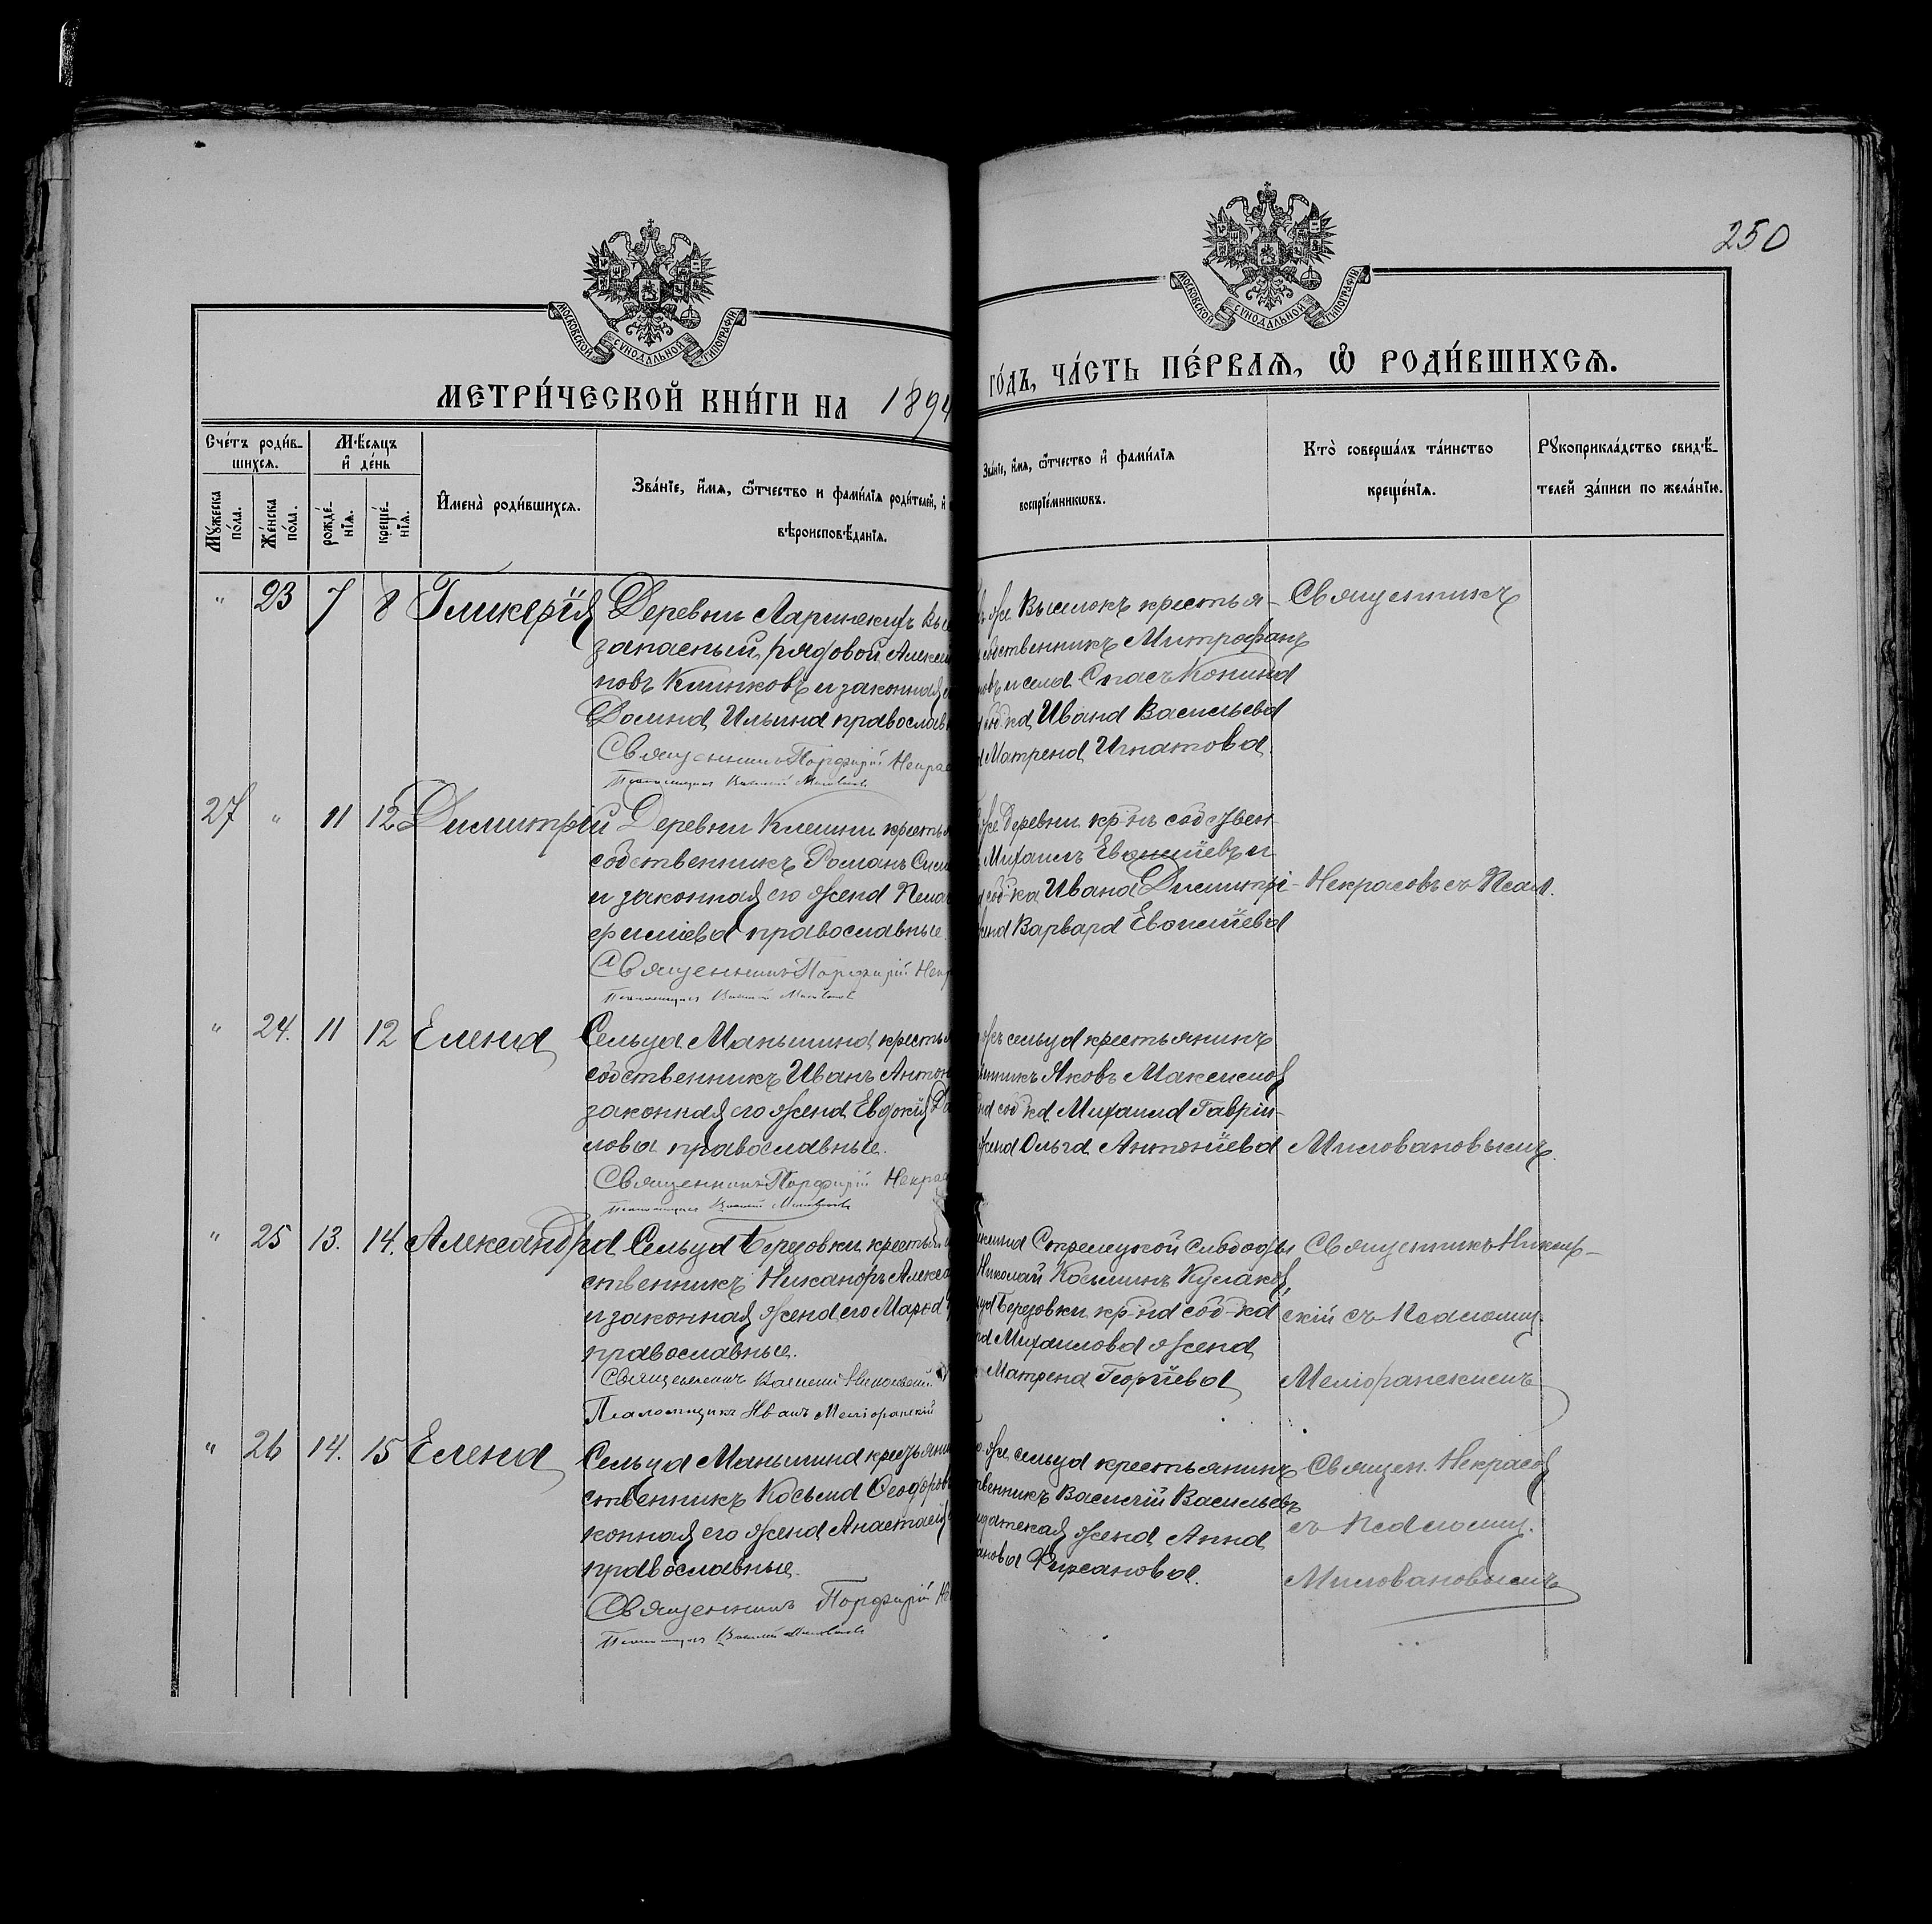 250
МОСКОВСКОЙ СѴНОДАЛЬНОЙ ТИПОГРАФІИ
МОСКОВСКОЙ СѴНОДАЛЬНОЙ ТИПОГРАФІИ
МЕТРИ́ЧЕСКОЙ КНИ́ГИ НА 1894
ГО́ДЪ, ЧА́СТЬ ПЕ́РВАѦ, Ѡ҆ РОДИ́ВШИХСѦ.
Сче́тъ роди́в-
шихсѧ.
Мѣ́сѧцъ
и҆ де́нь
Мꙋ́жеска
по́ла.
Же́нска
по́ла.
рожде́-
нїѧ.
креще́-
нїѧ.
И҆мена̀ роди́вшихсѧ.
Зва́нїе, и҆́мѧ, ѻ҆́тчество и фами́лїѧ роди́телей, и҆
вѣроисповѣ́данїѧ.
Зва́нїе, и҆́мѧ, ѻ҆́тчество и҆ фами́лїѧ
воспрїе́мникѡвъ.
Кто̀ соверша́лъ та́инство
креще́нїѧ.
Рꙋкоприкла́дство свидѣ́-
телей за́писи по жела́нїю.
" 23 7 8 Гликерія Деревни Ларинскихъ Выс
запасный рядовой Алексѣй
новъ Климковъ и законная
Домна Ильина православн
Священникъ Порфирій Некрас
Псаломщикъ Василій Миловановъ
же Выселокъ крестья-
собственникъ Митрофанъ
новъ и села Спасъ Конина
соб-ка Ивана Васильева
Матрена Игнатова.
Священникъ
27 " 11 12 Димитрій Деревни Клешни крестья
собственникъ Романъ Сим
и законная его жена Пелаг
ефимієва православные.
Священникъ Порфирій Некр
Псаломщикъ Василій Миловановъ
же Деревни кр-нъ собствен
Михаилъ Евфиміевъ и
соб-ка Ивана Димитрі-
жена Варвара
Некрасовъ съ Псал.
" 24. 11 12 Елена Сельца Маньшина крестья
собственникъ Иванъ Антон
законная его жена Евдокія
лова православные.
Священникъ Порфирій Некрас
Псаломщикъ Василій Миловановъ
жъ сельца крестьянинъ
венникъ Яковъ Максимов
соб-ка Михаила Гаврiи-
жена Ольга Антоніева
Миловановымъ.
" 25 13. 14. Александра Сельца Березовки крестья
ственникъ Никаноръ Алекса
и законная жена его Марѳа
православные.
Священникъ Василій Никольскій
Псаломщикъ Иванъ Меліоранскій
Стрелецкой слободы
Николай Косьминъ Кулаков,
Березовки кр-на соб-ка
Михаилова жена
Матрена Георгіева
Священникъ Николь-
скій съ Псаломщ.
Меліоранскимъ
" 26 14. 15 Елена Сельца Маньшина крестьянин
ственникъ Косьма Ѳеодоров
конная его жена Анастасія
православные.
Священникъ Порфирій Не
Псаломщикъ Василій Миловановъ
же сельца крестьянинъ
твенникъ Василій Васильевъ
солдатская жена Анна
анова Фирсанова.
Священ. Некрасов
съ Псаломщ.
Миловановымъ